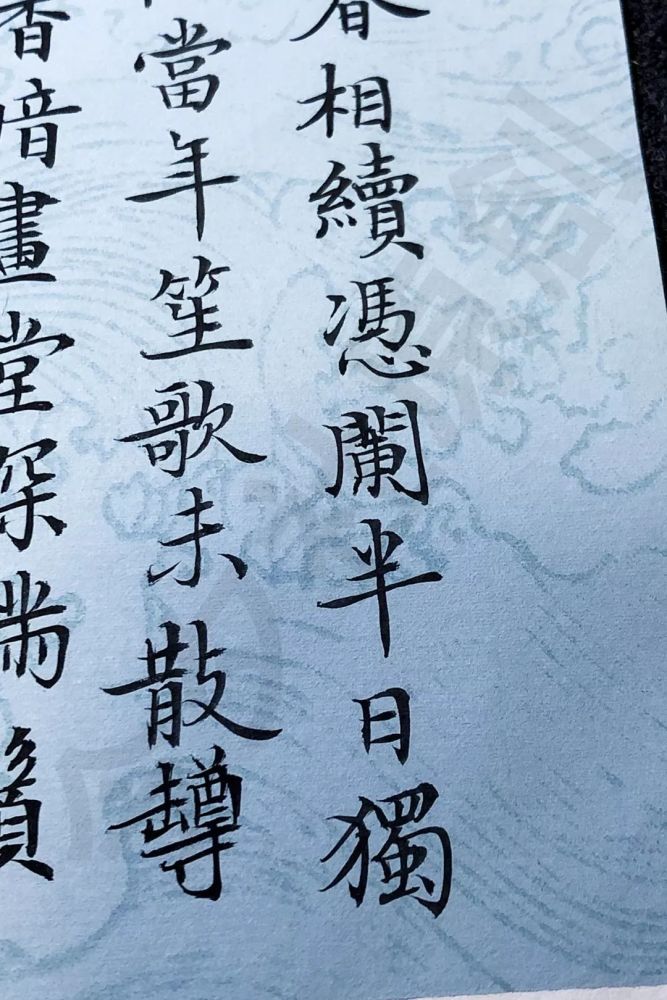 春相續憑闌半日獨
當年笙歌未散罇
香暗畫堂深